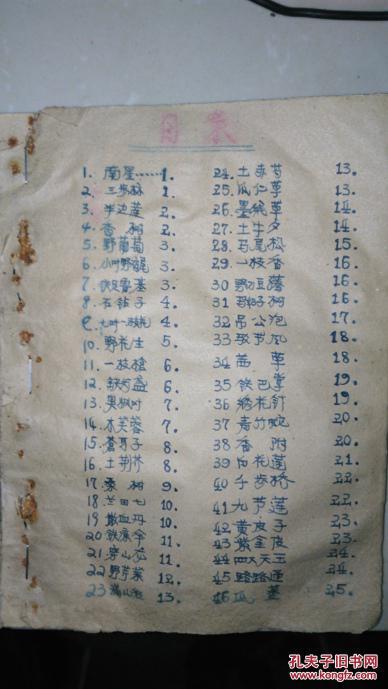 目录
1. 南星......1.
2. 三步跳 1.
3. 半边莲 2.
4. 香树 2.
5. 野葡萄 3.
6. 小叶野鸡尾 3.
7. 3.
8. 石钻子 4.
9. 七叶一枝花 4.
10. 野花生 5.
11. 一枝枪 6.
12. 铁灯盏 6.
13. 果枫叶 7.
14. 木芙蓉 7.
15. 苍耳子 8.
16. 土荆芥 8.
17. 桑树 9.
18. 兰田七 10.
19. 散血丹 10.
20. 铁凉伞 11.
21. 穿山龙 11.
22. 野芹菜 12.
23. 13.
24. 土赤芍 13.
25. 瓜仁草 13.
26. 墨纯草 14.
27. 土牛夕 14.
28. 马尾松 15.
29. 一枝香 16.
30. 野豆薯 16.
31. 树 16.
32. 吊公泡 17.
33. 节风 18.
34. 茜草 18.
35. 铁巴掌 19.
36. 绣花针 19.
37. 青竹蛇 20.
38. 香附 20.
39. 白花莲 21.
40. 千步桥 22.
41. 九芦莲 22.
42. 黄皮子 23.
43. 紫金皮 23.
44. 四大天王 24.
45. 路路通 24.
46. 瓜蒌 25.
孔夫子旧书网
www.kongfz.com